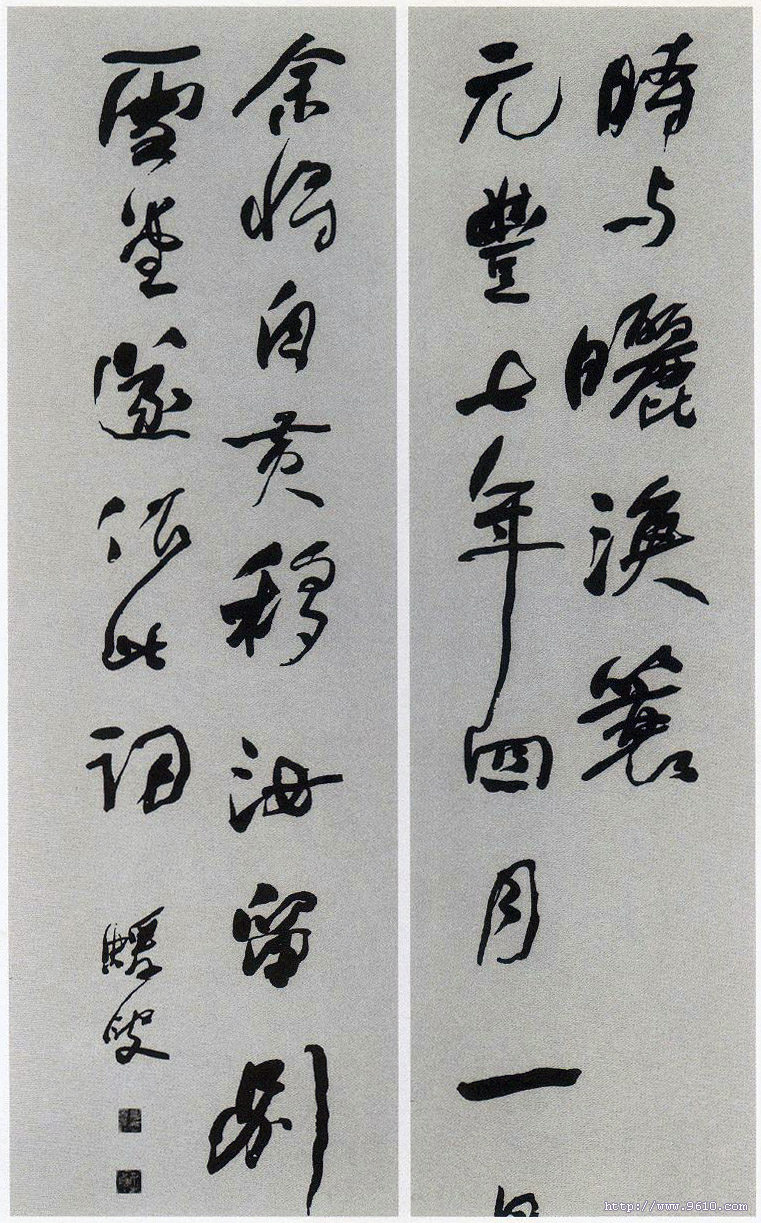 時与曬漁蓑
元豐七年四月一日
余將自黄移汝留別
雪堂遂作此詞
蝯叟
http://www.9610.com